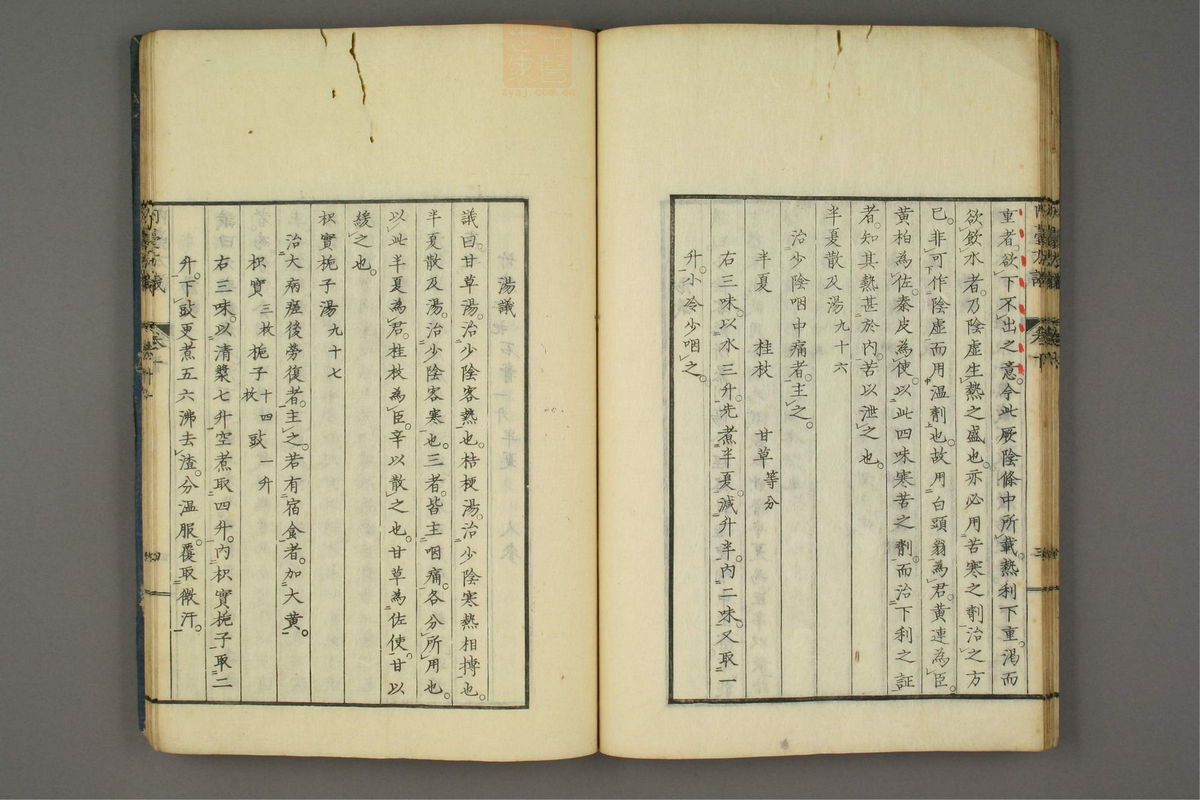 重者欲下不出之意今此厥陰條中所載熱利下重渴而
欲飲水者乃陰虛生熱之盛也亦必用苦寒之劑治之方
已非可作陰虛而用温劑也故用白頭翁為君黄連為臣
黄柏為佐秦皮為使以此四味寒苦之劑而治下利之証
者知其熱甚於內苦以泄之也
半夏散及湯九十六
治少陰咽中痛者主之
半夏　桂枝　甘草等分
右三味以水三升先煮半夏減升半內二味又取一
升小冷少咽之
湯議
議曰甘草湯治少陰客熱也桔梗湯治少陰寒熱相摶也
半夏散及湯治少陰客寒也三者皆主咽痛各分所用也
以此半夏為君桂枝為臣辛以散之也甘草為佐使甘以
緩之也
枳實梔子湯九十七
治大病瘥後勞復者主之若有宿食者加大黄
枳實三枚 梔子十四枚 豉一升
右三味以清漿七升空煮取四升內枳實梔子取二
升下豉更煮五六沸去渣分温服覆取微汗